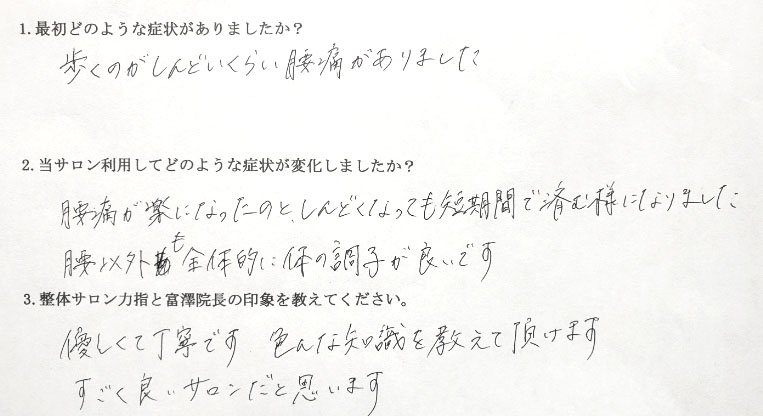 1.最初どのような症状がありましたか？
歩くのがしんどいくらい腰痛がありました
2.当サロン利用してどのような症状が変化しましたか？
腰痛が楽になったのと、しんどくなっても短期間で済む様になりました
腰以外も全体的に体の調子が良いです
3.整体サロン力指と富澤院長の印象を教えてください。
優しくて丁寧です 色んな知識を教えて頂けます
すごく良いサロンだと思います